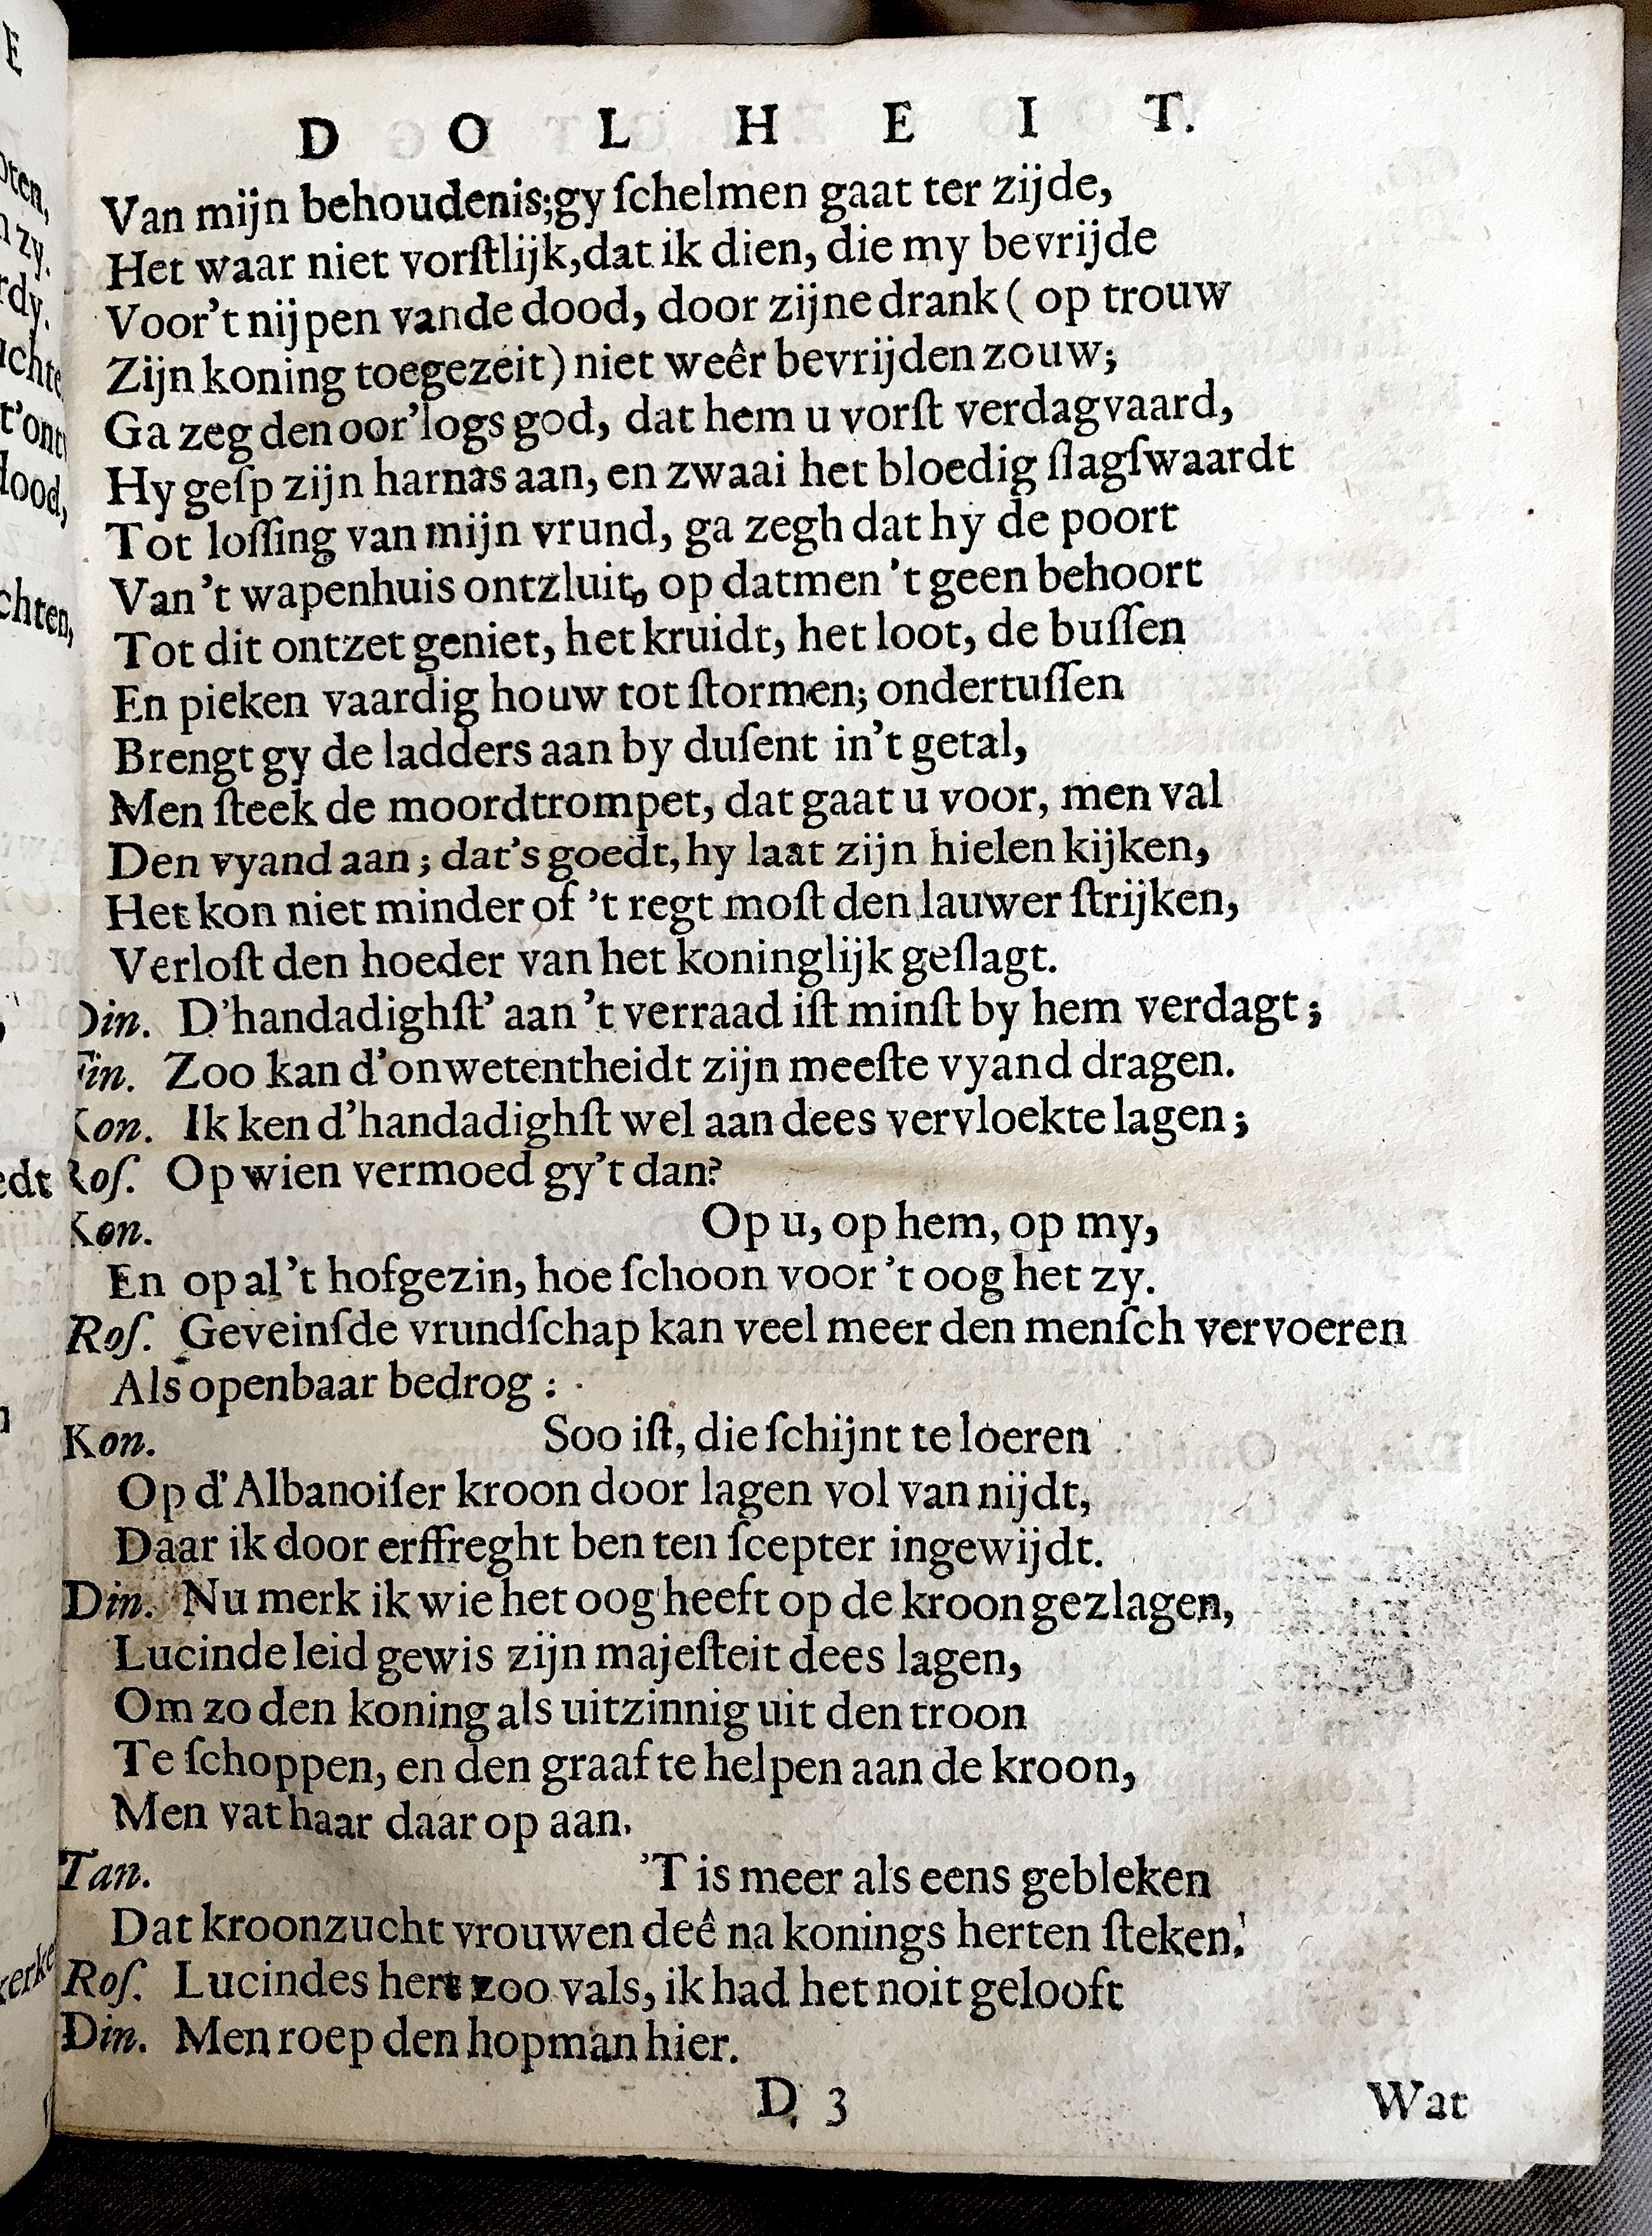 D O L H E I T.
Van mijn behoudenis;gy ſchelmen gaat ter zijde,
Het waar niet vorſtlijk,dat ik dien, die my bevrijde
Voor't nijpen vande dood, door zijne drank ( op trouw
Zijn koning toegezeit) niet weêr bevrijden zouw;
Ga zeg den oor'logs god, dat hem u vorſt verdagvaard,
Hy geſp zijn harnas aan, en zwaai het bloedig ſlagſwaardt
Tot loſſing van mijn vrund, ga zegh dat hy de poort
Van 't wapenhuis ontzluit, op datmen 't geen behoort
Tot dit ontzet geniet, het kruidt, het loot, de buſſen
En pieken vaardig houw tot ſtormen; ondertuſſen
Brengt gy de ladders aan by duſent in't getal,
Men ſteek de moordtrompet, dat gaat u voor, men val
Den vyand aan; dat's goedt, hy laat zijn hielen kijken,
Het kon niet minder of 't regt moſt den lauwer ſtrijken,
Verloſt den hoeder van het koninglijk geſlagt.
Din. D'handadighſt' aan 't verraad iſt minſt by hem verdagt;
Fin. Zoo kan d'onwetentheidt zijn meeſte vyand dragen.
Kon. Ik ken d'handadighſt wel aan dees vervloekte lagen;
Roſ. Op wien vermoed gy't dan?
Kon. Op u, op hem, op my,
En op al 't hofgezin, hoe ſchoon voor 't oog het zy.
Roſ. Geveinſde vrundſchap kan veel meer den menſch vervoeren
Als openbaar bedrog:
Kon. Soo iſt, die ſchijnt te loeren
Op d'Albanoiſer kroon door lagen vol van nijdt,
Daar ik door erffreght ben ten ſcepter ingewijdt.
Din. Nu merk ik wie het oog heeft op de kroon gezlagen,
Lucinde leid gewis zijn majeſteit dees lagen,
Om zo den koning als uitzinnig uit den troon
Te ſchoppen, en den graaf te helpen aan de kroon,
Men vat haar daar op aan.
Tan. 'T is meer als eens gebleken
Dat kroonzucht vrouwen deê na konings herten ſteken.
Roſ. Lucindes hert zoo vals, ik had het noit gelooft
Din. Men roep den hopman hier.
D 3
Wat